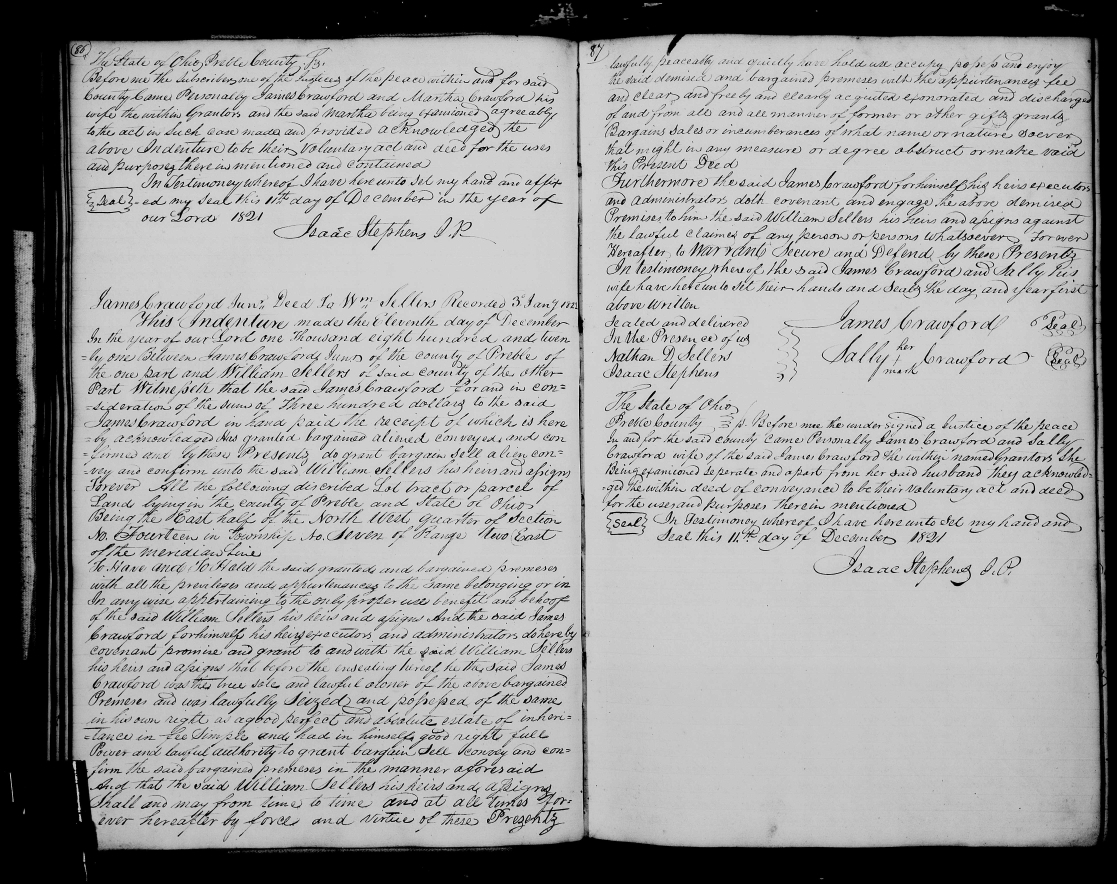 86
The State of Ohio Preble County Ss.
Before me the Subscriber one of the Justices of the peace within and for said
County Came Personally James Crawford and Martha Crawford his
wife the within Grantors and the said Martha being examioned agreeably
to the act in Such Case made and provided acknowledged the
above Indenture to be their Voluntary act and deed for the uses
and purposes therein mentioned and contained
In Testimony whereof I have hereunto Set my hand and affix
Seal -ed my Seal this 11th day of December in the year of
our Lord 1821
Isaac Stephens J. P.
James Crawford Junr. Deed To Wm Sellers Recorded 3d Jany 1822
This Indenture made the Eleventh day of December
In the year of our Lord one Thousand eight hundred and twen
=ty one Between James Crawford Junr of the county of Preble of
the one part and William Sellers of said county of the other
Part Witnesseth that the said James Crawford for and in con=
=sideration of the sum of Three hundred dollars to the said
James Crawford in hand paid the receipt of which is here
=by acknowledged Has granted bargained aliened conveyed and con
=firmed and by these Presents do grant bargain sell alien con=
=vey and confirm unto the said William Sellers his heirs and assigns
Forever All the following discribed Lot tract or parcel of
Land lying in the county of Preble and State of Ohio
Being the East half of the North West quarter of Section
No. Fourteen in Township No. Seven of Range Two East
of the meridian Line
To Have and To Hold the said granted and bargained premeses
with all the previleges and appurtenances to the same belonging or in
In any wise appertaining to the only proper use benefit and behoof
of the said William Sellers his heirs and assigns And the said James
Crawford for himself his heirs executors and administrators do hereby
covenant promise and grant to and with the said William Sellers
his heirs and assigns that before the ensealing hereof he the said James
Crawford was the true sole and lawful owner of the above bargained
Premeses and was lawfully Seized and possessed of the same
in his own right as a good perfect and absolute estate of inheri=
=tance in fee Simple and had in himself good right full
Power and lawful authority to grant bargain Sell convey and con=
firm the said bargained premeses in the manner aforesaid
And that the said William Sellers his heirs and assigns
Shall and may from time to time and at all times for=
ever hereafter by force and virtue of these Presents
87
lawfully peaceably and quietly have hold use occupy possess and enjoy
the said demised and bargained premeses with the appurtenances free
and clear and freely and clearly acquited exonorated and discharged
of and from all and all manner of former or other gifts grants
Bargains Sales or incumberances of what name or nature soever
that might in any measure or degree obstruct or make void
this Present Deed
Furthermore the said James Crawford for himself his heirs executors
and administrators doth covenant and engage the above demised
Premises to him the said William Sellers his heirs and assigns against
the lawful claimes of any person or persons whatsoever Forever
Hereafter to Warrant Secure and Defend by these Presents
In testimoney whereof the said James Crawford and Sally his
wife have hereunto Set their hands and Seals the day and year first
above written
Sealed and delivered
In the Presence of us
Nathan D Sellers
Isaac Stephens
James Crawford Seal
Sally her mark Crawford Seal
The State of Ohio
Preble County Ss. Before me the undersigned a Justice of the peace
In and for the said county came Personally James Crawford and Sally
Crawford wife of the said James Crawford the within named Grantors She
Being examioned Seperate and apart from her said husband they acknowled-
ged the within deed of conveyance to be their voluntary act and deed
for the uses and Purposes therein mentioned
Seal In Testimony whereof I have hereunto Set my hand and
Seal this 11th day of December 1821
Isaac Stephens J. P.